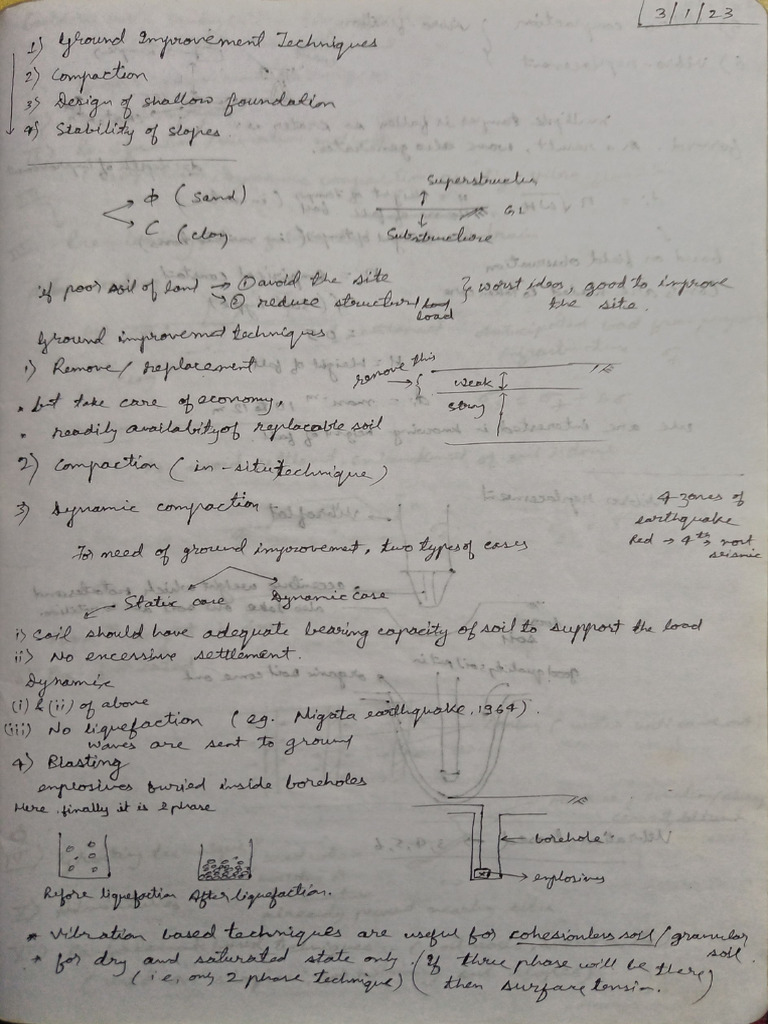 3/1/23
1) Ground Improvement Techniques
2) Compaction
3) Design of shallow foundation
4) Stability of slopes
Φ (Sand)
C (clay
Superstructure
GL
Substructure
if poor soil of land → ① avoid the site
→ ② reduce structural load
} worst ideas, good to improve
the site.
Ground improvement techniques
1) Remove/replacement
remove this
weak
strong
• but take care of economy,
• readily availability of replacable soil
2) Compaction (in-situ technique)
3) Dynamic compaction
4 zones of
earthquake
Red → 4th, most
seismic
For need of ground improvement, two types of cases
Static case
Dynamic case
i) Soil should have adequate bearing capacity of soil to support the load
ii) No excessive settlement.
Dynamic
(i) & (ii) of above
(iii) No liquefaction (eg. Nigata earthquake, 1964).
waves are sent to ground
4) Blasting
explosives buried inside boreholes
Here, finally it is 2 phase
borehole
explosives
Before liquefaction After liquefaction.
* Vibration based techniques are useful for cohesionless soil/granular soil.
* for dry and saturated state only (If three phase will be there
(i.e, only 2 phase technique) then surface tension.)